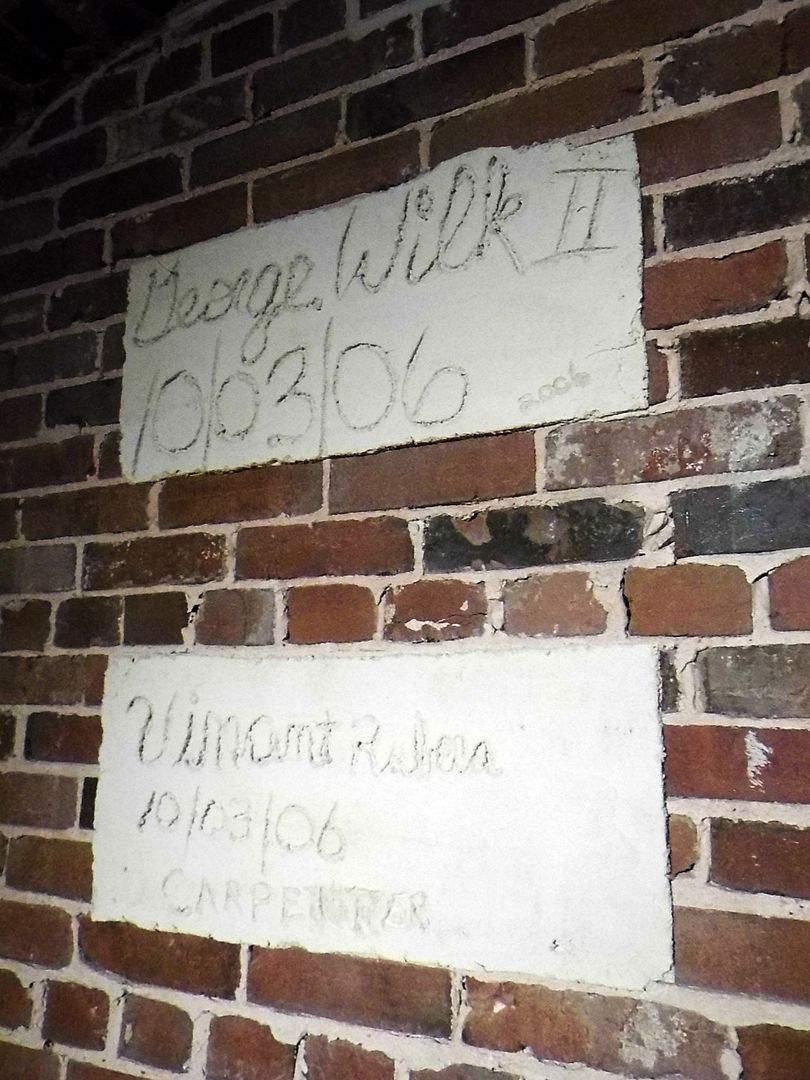 George Wilk II
10/03/06
2006
Vimont
10/03/06
CARPENTER